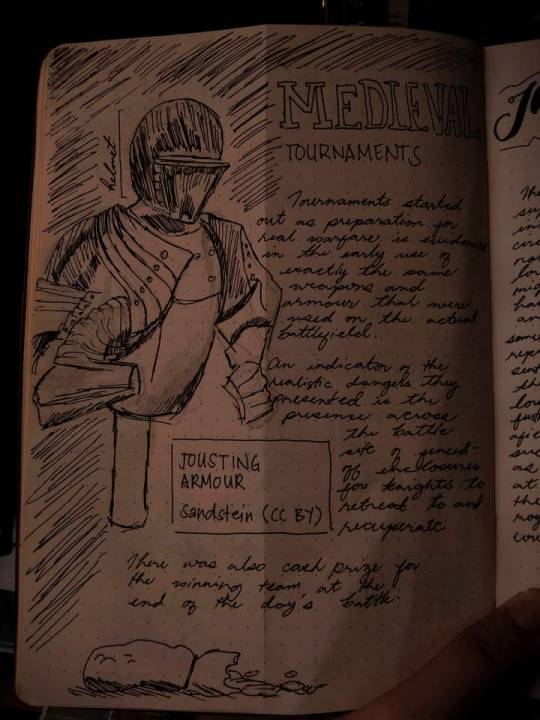 MEDIEVAL
TOURNAMENTS
helmet
Tournaments started
out as preparation for
real warfare is evidenced
in the early use of
exactly the same
weapons and
armour that were
used on the actual
battlefield.
An indicator of the
realistic dangers they
presented is the
presence across
the battle
site of fenced-
off enclosures
for knights to
retreat to and
recuperate.
JOUSTING
ARMOUR
Sandstein (CC BY)
There was also cash prize for
the winning team at the
end of the day's battle.
The
in
as
at
the